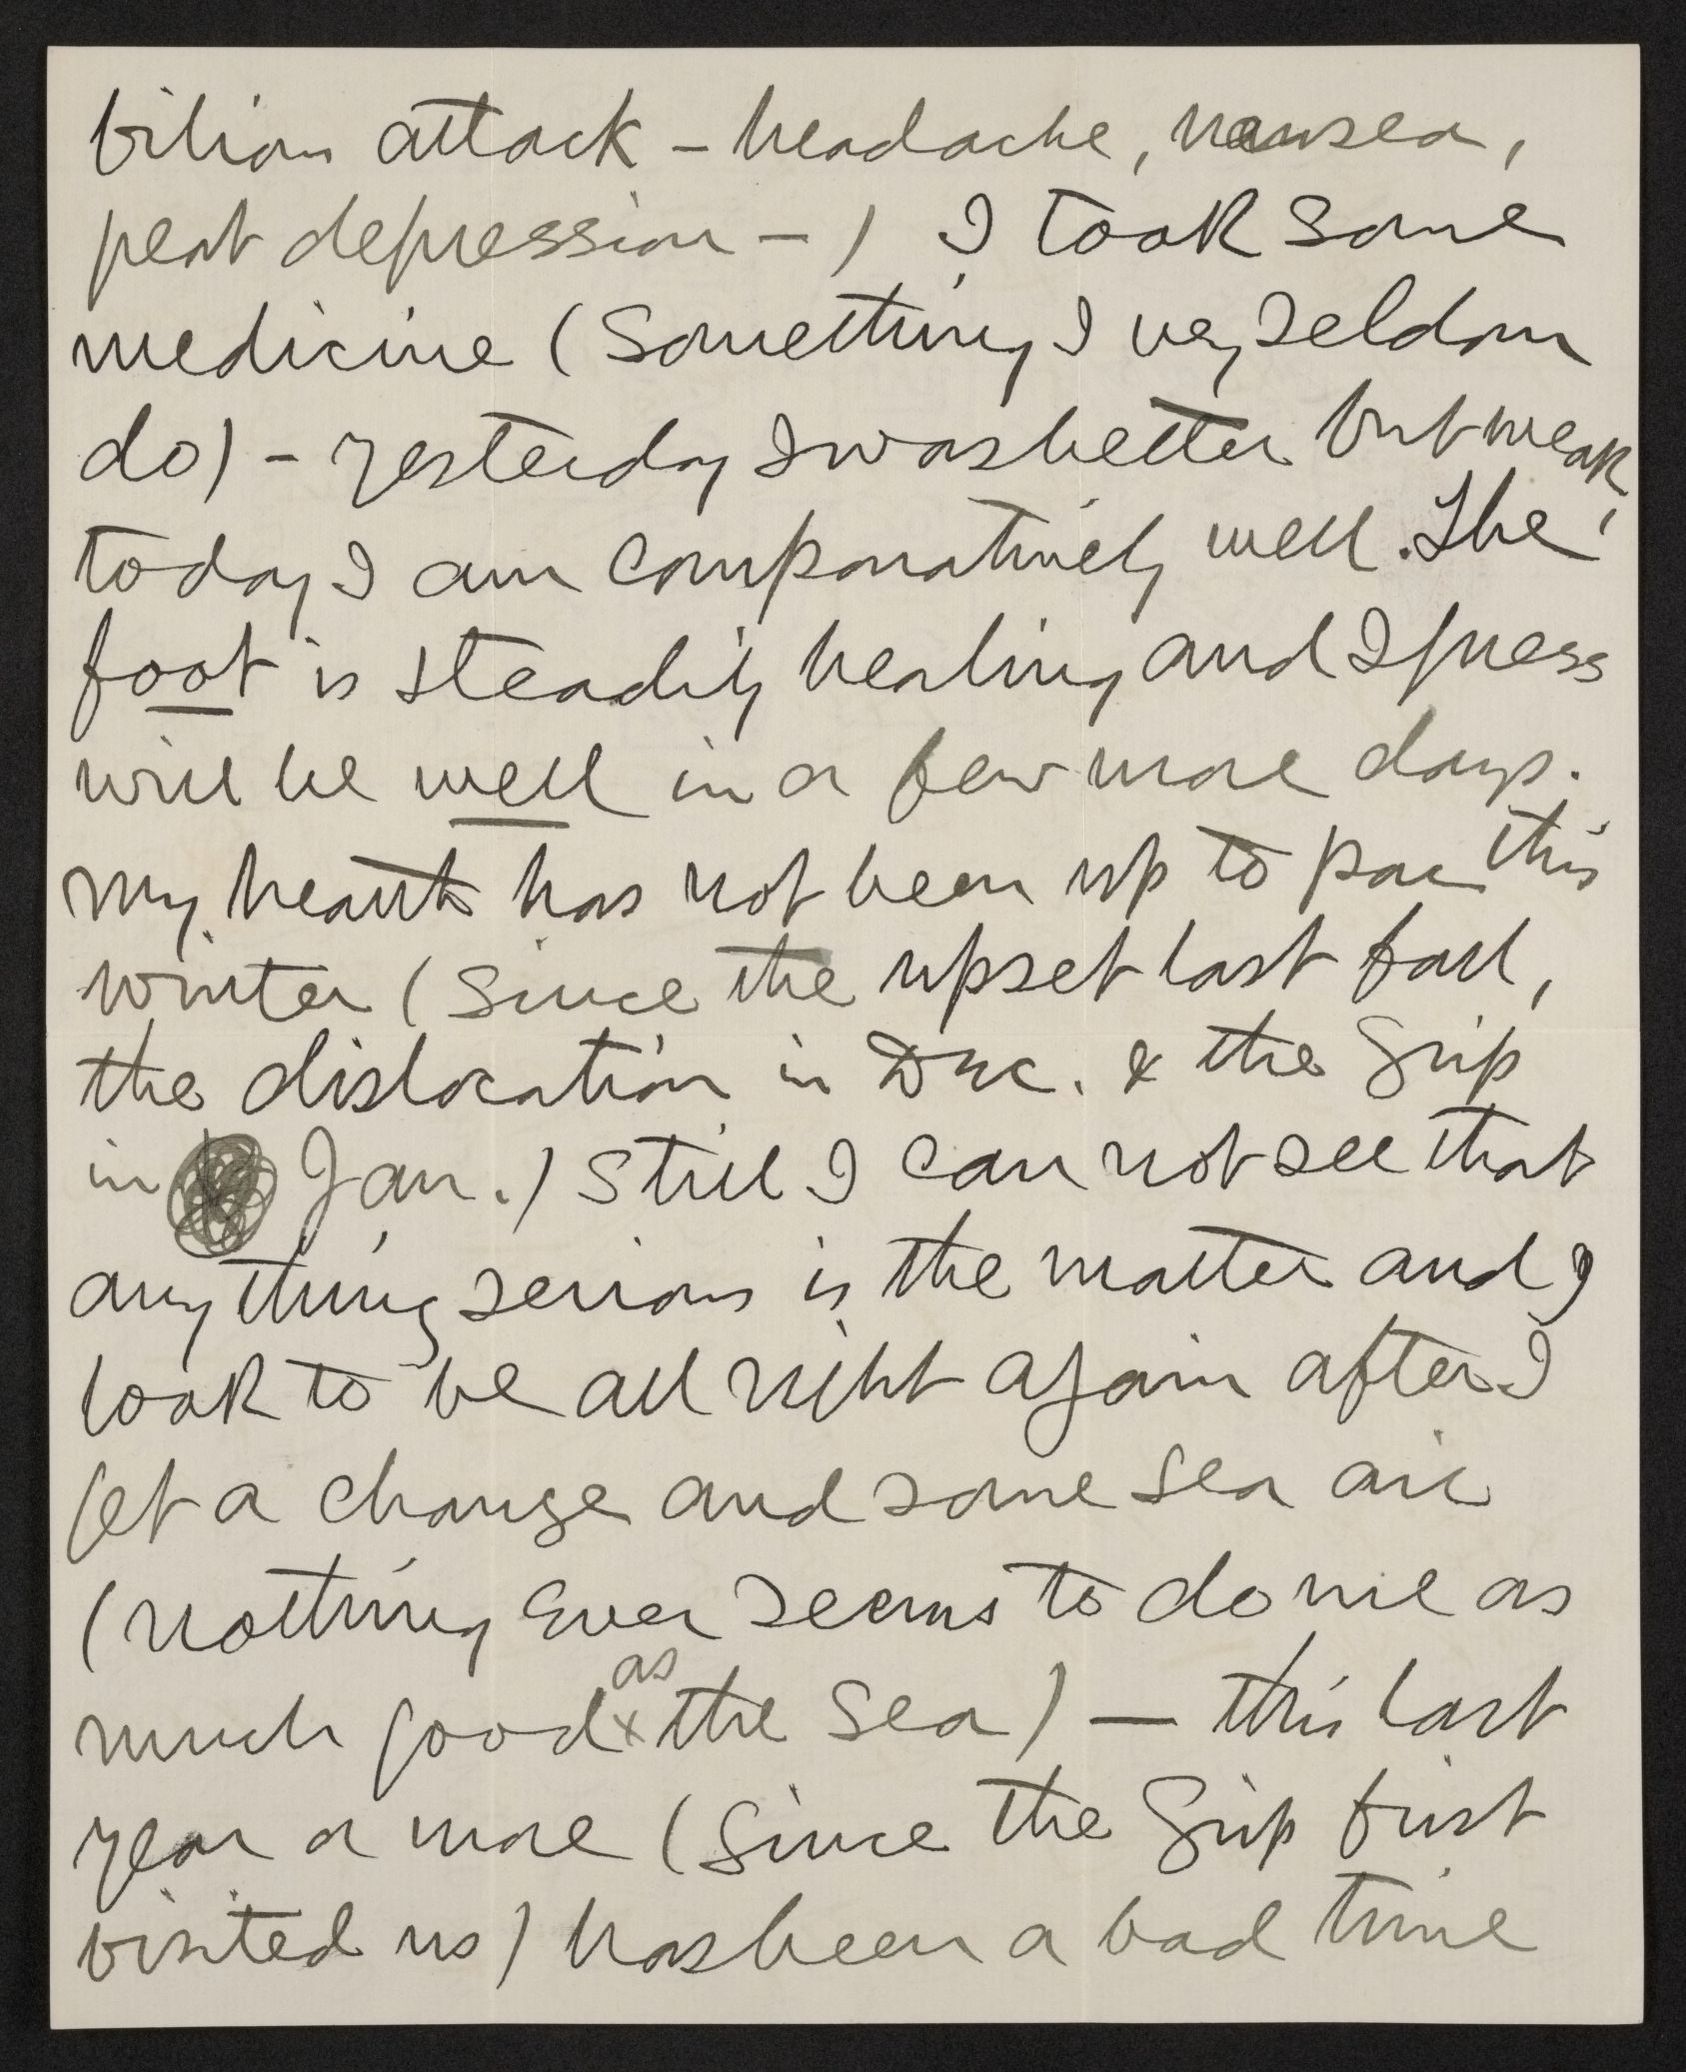 bilious attack – headache, nausea,
great depression –) I took some
medicine (something I very seldom
do) – yesterday I was better but weak,
today I am comparatively well. The
foot is steadily healing and I guess
will be well in a few more days.
My health has not been up to par this
winter (since the upset last fall,
the dislocation in Dec. & the Grip
in Jan.) Still I can not see that
anything serious is the matter and I
look to be all right again after I
get a change and some sea air
(nothing ever seems to do me as
much good as the sea) — this last
year or more (since the Grip first
visited us) has been a bad time